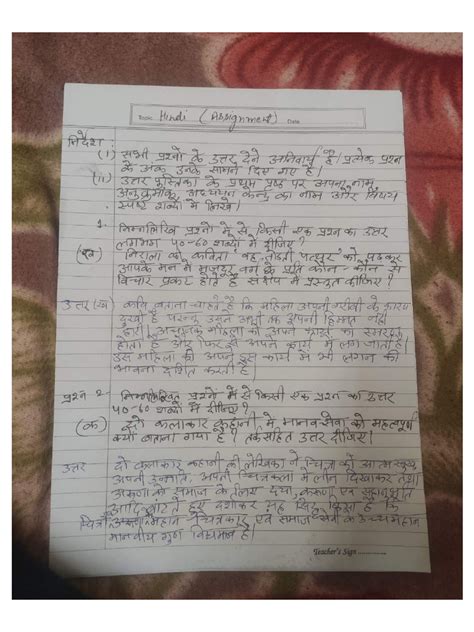 Hindi (Assignment) Date
निर्देश :
(i) सभी प्रश्नों के उत्तर देने अनिवार्य है। प्रत्येक प्रश्न
के अंक उनके सामने दिए गए है।
(ii) उत्तर पुस्तिका के प्रथम पृष्ठ पर अपना नाम,
अनुक्रमांक, अध्ययन केन्द्र का नाम और विषय
स्पष्ट शब्दों में लिखे।
1. निम्नलिखित प्रश्नों में से किसी एक प्रश्न का उत्तर
लगभग 40-60 शब्दों में दीजिए?
निराला की कविता 'वह तोड़ती पत्थर' को पढ़कर
आपके मन में मजदूर वर्ग के प्रति कौन-कौन से
विचार प्रकट होते है संक्षेप में प्रस्तुत कीजिए।
उत्तर (ख) कवि बताना चाहते है कि महिला अपनी गरीबी के कारण
दुखी है परन्तु उसने अभी तक अपनी हिम्मत नहीं
हारी। अचानक महिला को अपने कार्य का स्मरण
होता है और फिर से अपने कार्य में लग जाती है।
उस महिला की अपने इस कार्य में भी लगन की
भावना दर्शित करती है।
प्रश्न 2 निम्नलिखित प्रश्नों में से किसी एक प्रश्न का उत्तर
40-60 शब्दों में दीजिए?
(क) दो कलाकार कहानी में मानव सेवा को महत्वपूर्ण
क्यों बताया गया है। तर्क सहित उत्तर दीजिए।
उत्तर दो कलाकार कहानी की लेखिका ने चित्रा को
अपनी अपनी चित्रकला में लीन दिखाकर तथा
अरूणा को समाज के लिए दया, करूणा एवं सहानुभूति
आदि दर्शाकर यह सिद्ध किया है कि
चित्रकार एवं समाज
मानवीय गुण विद्यमान है।
Teacher's Sign